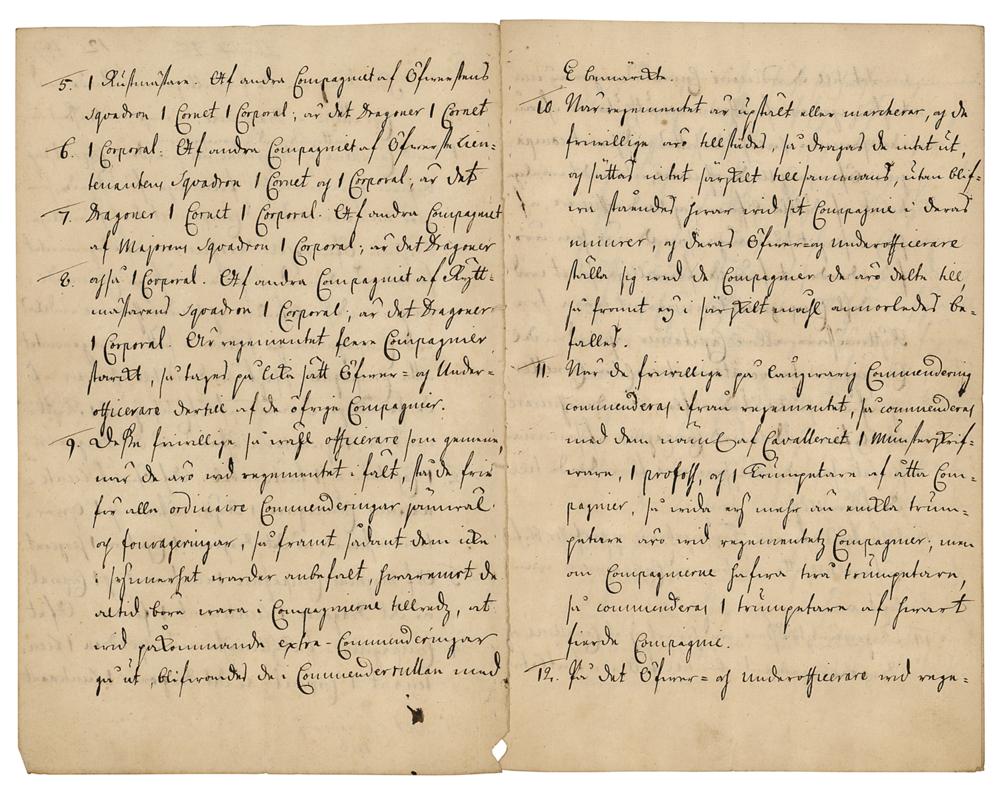 5. 1 Rustmästare. Af andra Compagniet af Öfwerstens
Squadron 1 Cornet 1 Corporal; är det Dragoner 1 Cornet
6. 1 Corporal. Af andra Compagniet af Öfwerste Lieu-
tenantens Squadron 1 Cornet och 1 Corporal; är det
7. Dragoner 1 Cornet 1 Corporal. Af andra Compagniet
af Majorens Squadron 1 Corporal; är det Dragoner
8. också 1 Corporal. Af andra Compagniet af Rytt-
mästarens Squadron 1 Corporal; är det Dragoner
1 Corporal. Är regementet flere Compagnier
starckt, så tages på lika sätt Öfwer= och Under-
officerare dertill af de öfrige Compagnier.
9. Desse friwillige så wähl officerare som gemene,
när de äro wid regementet i fält, stå de frie
för alla ordinaire Commenderingar, jämwäl
och fourageringar, så framt sådant dem icke
i synnerhet warder anbefalt, hwaremot de
altid böra wara i Compagnierne tillredz, at
wid påkommande extra-Commenderingar
gå ut, blifwandes de i Commenderrullan med
E bemärckte.
10. När regementet är upstält eller marcherar, och de
friwillige äro tillstädes, så dragas de intet ut,
och sättas intet särskilt tillsammans, utan blif-
wa ståendes hwar wid sit Compagnie i deras
numrer, och deras Öfwer= och underofficerare
ställa sig wed de Compagnier de äro delte till,
så framt ey i särskilt mohl annorledes be-
falles.
11. När de friwillige på långwarig Commendering
commenderas ifrån regementet, så commenderas
med dem nöml. af Cavalleriet 1 Munsterskrif-
ware, 1 profoss, och 1 Trumpetare af åtta Com-
pagnier, så wida ey mehr än enckla trum-
petare äro wid regementetz Compagnier; men
om Compagnierne hafwa twå trumpetare,
så commenderas 1 trumpetare af hwart
fierde Compagnie.
12. På det Öfwer= och underofficerare wid rege=